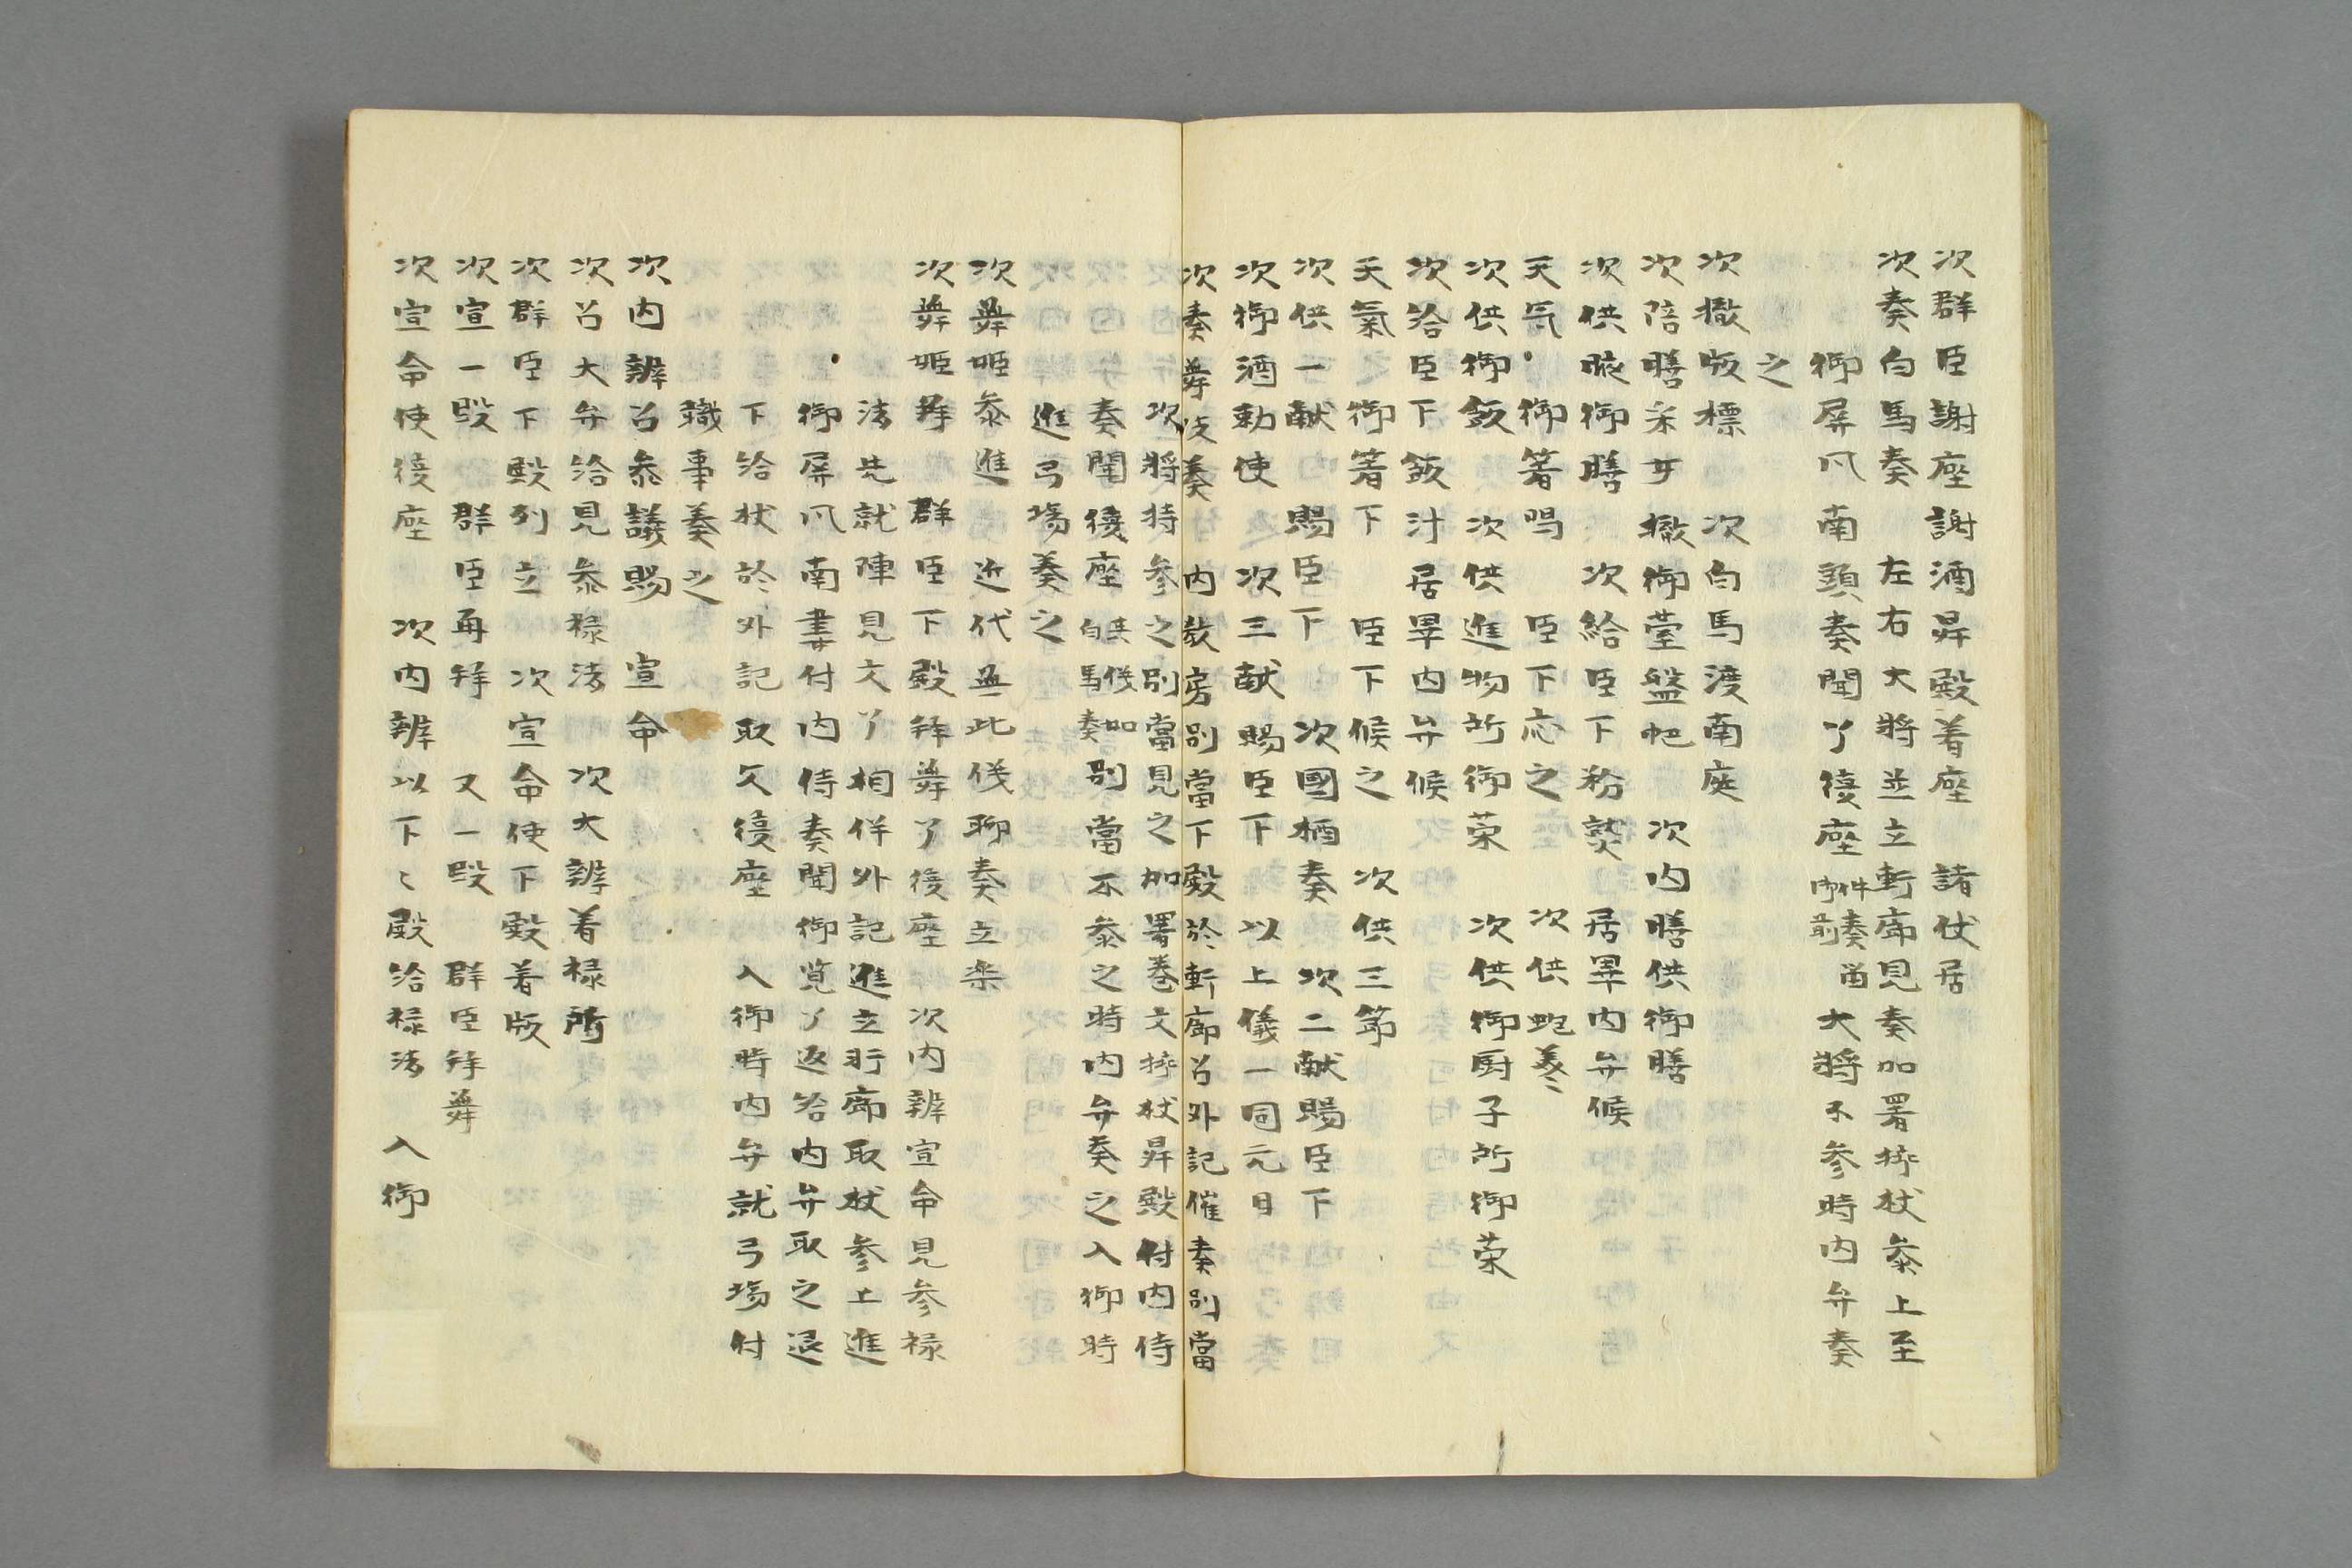 次群臣謝座謝酒昇殿着座　諸仗居
次奏白馬奏　左右大将並立軒廊見奏加署挿杖参上至
御屏風南頭奏聞了復座 件奏留御前 大将不参時内弁奏
之
次撤版標　次白馬渡南庭
次陪膳采女撤御臺盤帊　次内膳供御膳
次供腋御膳　次給臣下粉熟　居畢内弁候
天気　御箸鳴　臣下応之　次供鮑羹
次供御飯　次供進物所御菜　次供御厨子所御菜
次給臣下飯汁　居畢内弁候
天氣　御箸下　臣下候之　次供三節
次供一献　賜臣下　次國栖奏　次二献賜臣下
次御酒勅使　次三献　賜臣下　以上儀一同元日
次奏舞妓奏　内教房別當下殿於軒廊召外記催奏別當
次将持参之別當見之加署巻文挿杖昇殿付内侍
奏聞復座 其儀如白馬奏 別當不参之時内弁奏之入御時
進弓場奏之
次舞姫参進　近代無此儀聊奏立楽
次舞姫拝　群臣下殿拝舞了復座　次内辨宣命見参禄
法先就陣見文了相伴外記進立軒廊取杖参上進
御屏風南妻付内侍奏聞御覧了返給内弁取之退
下給杖於外記取文復座　入御時内弁就弓場付
職事奏之
次内辨召参議賜　宣命
次召大弁給見参禄法　次大辨着禄所
次群臣下殿列立　次宣命使下殿着版
次宣一段　群臣再拝　又一段　群臣拝舞
次宣命使復座　次内辨以下々殿給禄法　入御